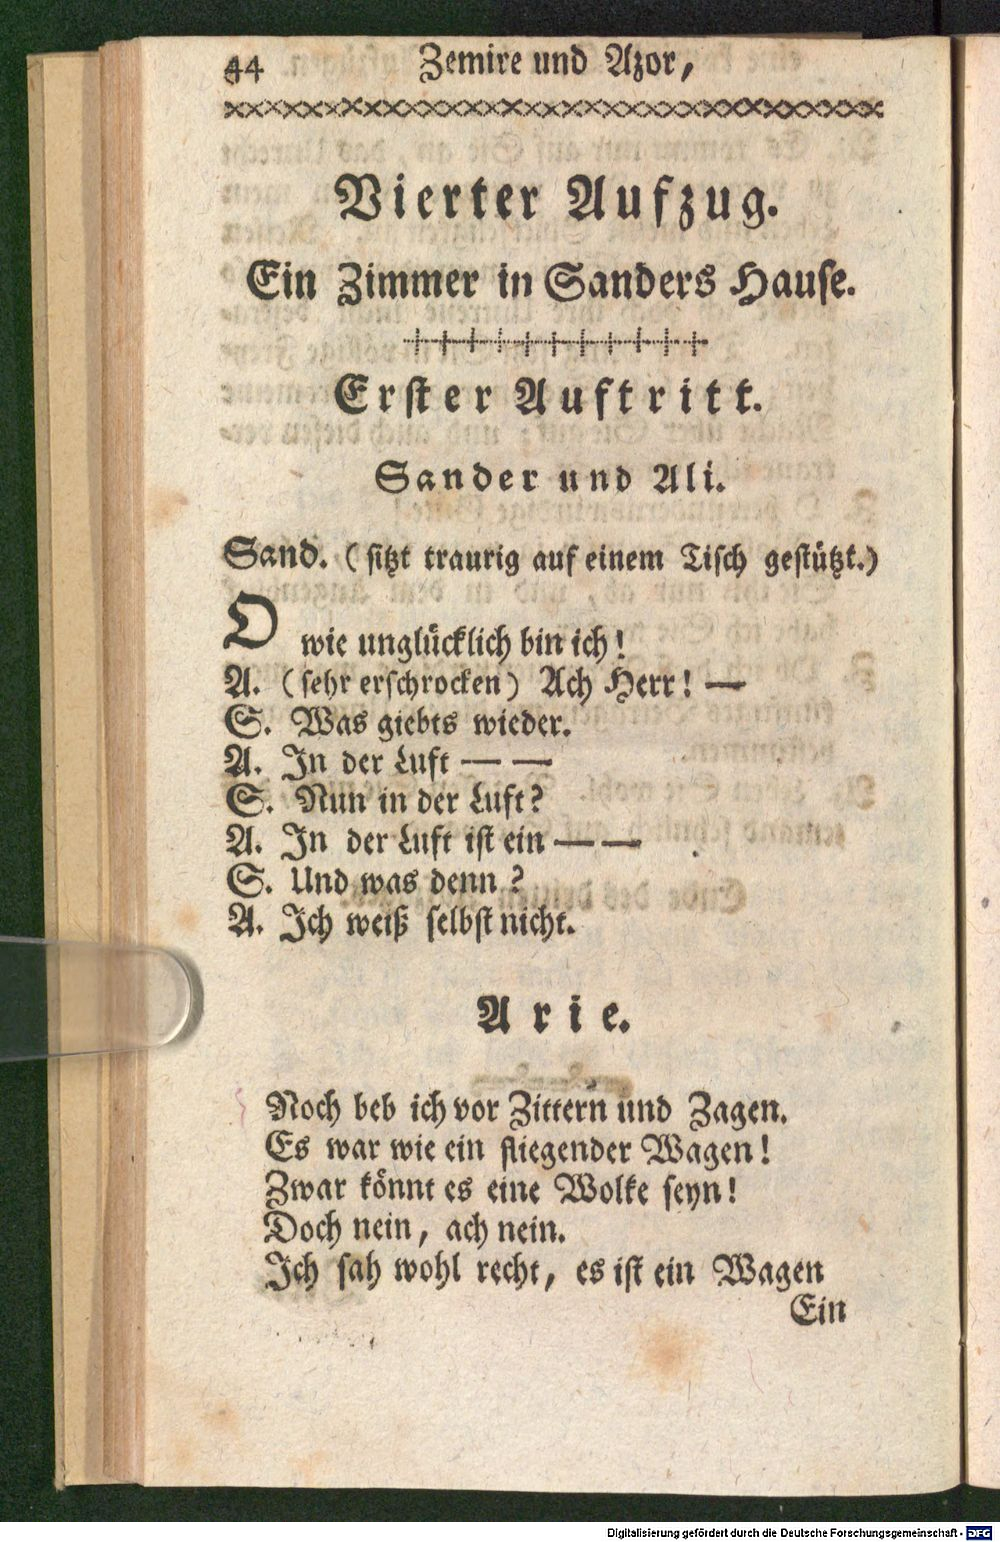 44 Zemire und Azor,
Vierter Aufzug.
Ein Zimmer in Sanders Hause.
Erster Auftritt.
Sander und Ali.
Sand. (sitzt traurig auf einem Tisch gestützt.)
O wie unglücklich bin ich!
A. (sehr erschrocken) Ach Herr! —
S. Was giebts wieder.
A. In der Luft — —
S. Nun in der Luft?
A. In der Luft ist ein — —
S. Und was denn?
A. Ich weiß selbst nicht.
Arie.
Noch beb ich vor Zittern und Zagen.
Es war wie ein fliegender Wagen!
Zwar könnt es eine Wolke seyn!
Doch nein, ach nein.
Ich sah wohl recht, es ist ein Wagen
Ein
Digitalisierung gefördert durch die Deutsche Forschungsgemeinschaft - DFG